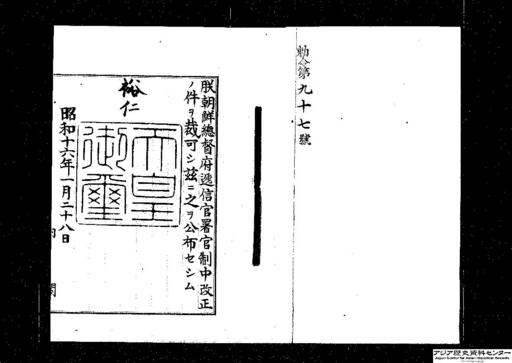 勅令第九十七號
朕朝鮮總督府遞信官署官制中改正
ノ件ヲ裁可シ茲ニ之ヲ公布セシム
裕仁
天皇御璽
昭和十六年一月二十八日
内閣
アジア歴史資料センター
Japan Center for Asian Historical Records